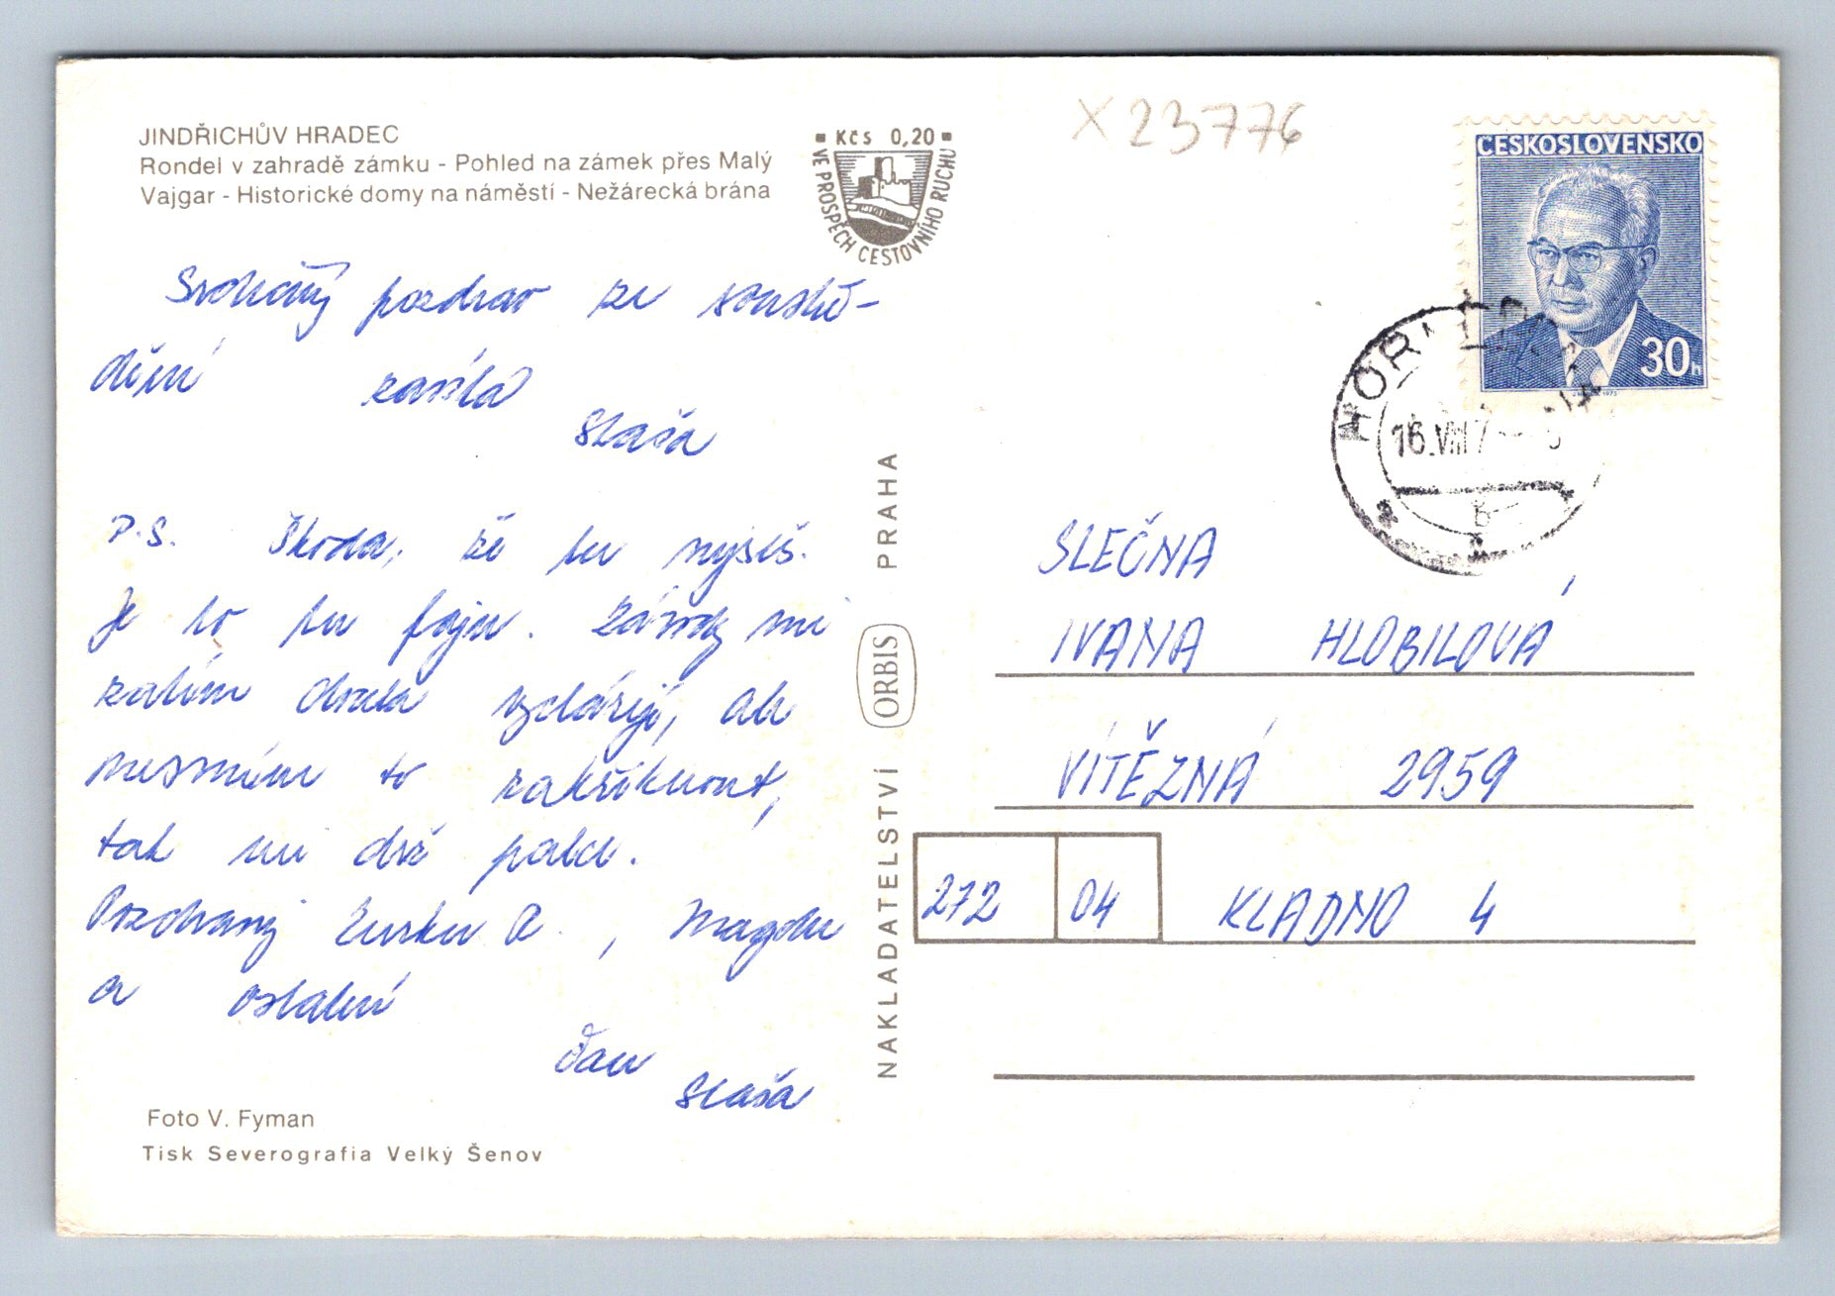 JINDŘICHŮV HRADEC
Rondel v zahradě zámku - Pohled na zámek přes Malý
Vajgar - Historické domy na náměstí - Nežárecká brána
Kčs 0,20
VE PROSPĚCH CESTOVNÍHO RUCHU
X 23776
ČESKOSLOVENSKO
30h
16.VIII.7
Srdečný pozdrav ze soustře-
dění zasílá
Staša
P.S. Škoda, že tu nejseš.
Je to tu fajn. Závody mi
zatím docela vycházejí, ale
nesmím to zakřiknout,
tak mi drž palce.
Pozdravuj Lenku R., Magdu
a ostatní
Čau
Staša
Foto V. Fyman
Tisk Severografia Velký Šenov
NAKLADATELSTVÍ ORBIS PRAHA
SLEČNA
IVANA HLOBILOVÁ
VÍTĚZNÁ 2959
272 04 KLADNO 4